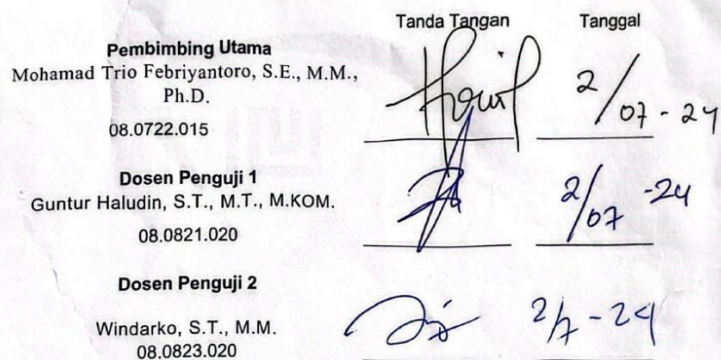 Tanda Tangan Tanggal
Pembimbing Utama
Mohamad Trio Febriyantoro, S.E., M.M.,
Ph.D.
08.0722.015
2/07-24
Dosen Penguji 1
Guntur Haludin, S.T., M.T., M.KOM.
08.0821.020
2/07-24
Dosen Penguji 2
Windarko, S.T., M.M.
08.0823.020
2/7-24